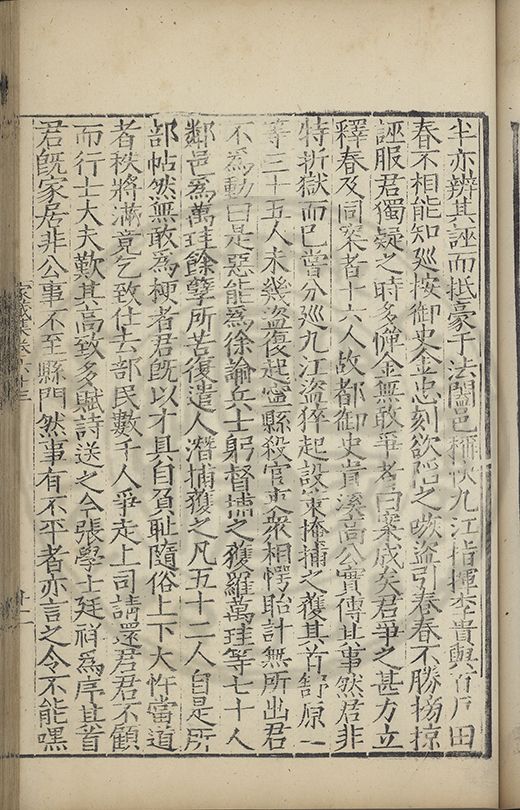 半亦辨其誣而抵豪于法闔邑稱快九江指揮李貴與百户田
春不相能知廵按御史金忠刻欲陷之嗾盗引春春不勝搒掠
誣服君獨疑之時多憚金無敢爭者曰案成矣君爭之甚力立
釋春及同案者十六人故都御史貴溪髙公實傳其事然君非
特折獄而已嘗分廵九江盗猝起設策掩捕之獲其首舒原一
等三十五人未幾盗復起縣殺官吏衆相愕眙計無所出君
不為動曰是惡能為徐諭兵士躬督捕之獲羅萬珪等七十人
鄰邑為萬珪餘孽所苦復遣人潛捕獲之凡五十二人自是所
部帖然無敢為梗者君旣以才具自負恥隨俗上下大忤當道
者秩將滿竟乞致仕去部民數千人爭走上司請還君君不顧
而行士大夫歎其髙致多賦詩送之今張學士廷祥為序其首
君旣家居非公事不至縣門然事有不平者亦言之令不能嘿